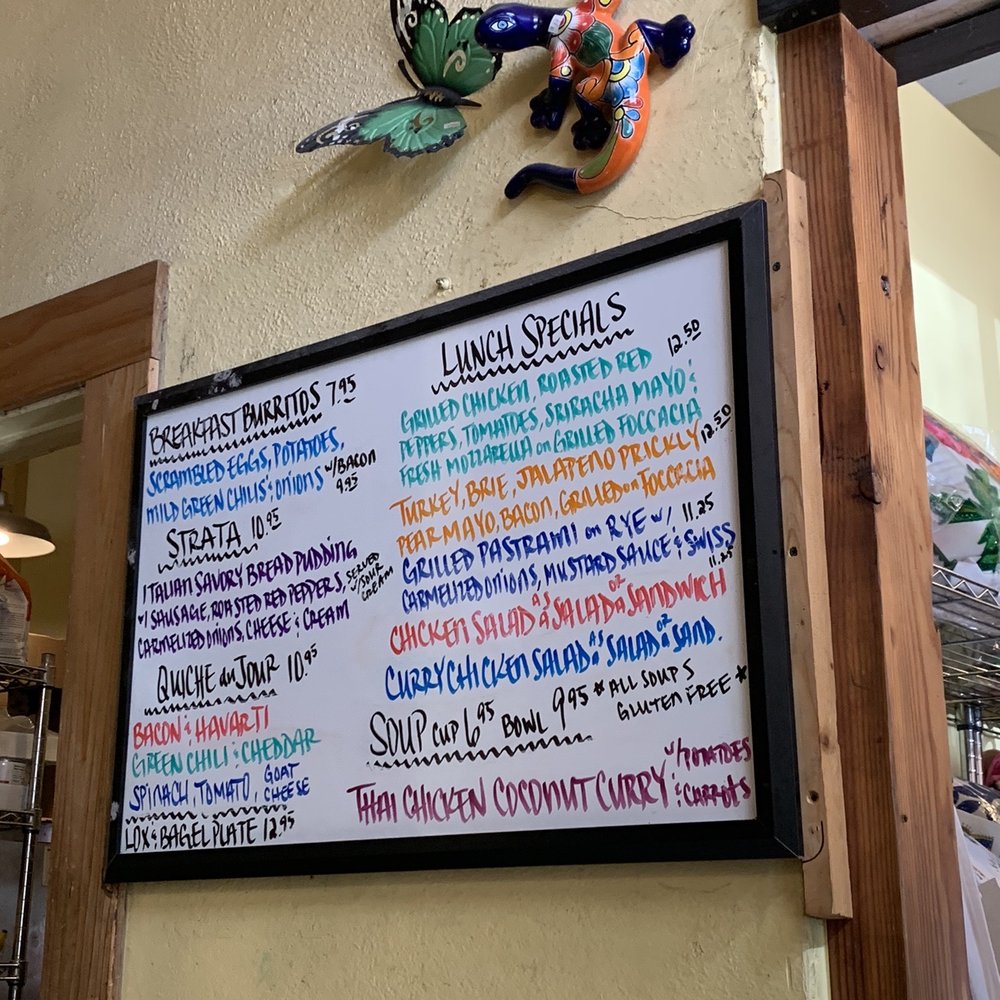 BREAKFAST BURRITOS 7.95
SCRAMBLED EGGS, POTATOES,
MILD GREEN CHILIS & ONIONS w/BACON 9.95
STRATA 10.95
ITALIAN SAVORY BREAD PUDDING
w/ SAUSAGE, ROASTED RED PEPPERS,
CARMELIZED ONIONS, CHEESE & CREAM
SERVED
w/SOUR
CREAM
QUICHE du JOUR 10.95
BACON & HAVARTI
GREEN CHILI & CHEDDAR
SPINACH, TOMATO, GOAT CHEESE
LOX & BAGEL PLATE 12.95
LUNCH SPECIALS
GRILLED CHICKEN, ROASTED RED 12.50
PEPPERS, TOMATOES, SRIRACHA MAYO &
FRESH MOZZARELLA on GRILLED FOCCACIA
TURKEY, BRIE, JALAPENO PRICKLY 12.50
PEAR MAYO, BACON, GRILLED on FOCCACIA
GRILLED PASTRAMI on RYE w/ 11.25
CARMELIZED ONIONS, MUSTARD SAUCE & SWISS
11.25
CHICKEN SALAD AS A SALAD OR A SANDWICH
CURRY CHICKEN SALAD AS A SALAD OR A SAND.
SOUP CUP 6.95 BOWL 9.95 * ALL SOUPS
GLUTEN FREE *
THAI CHICKEN COCONUT CURRY w/POTATOES
& CARROTS